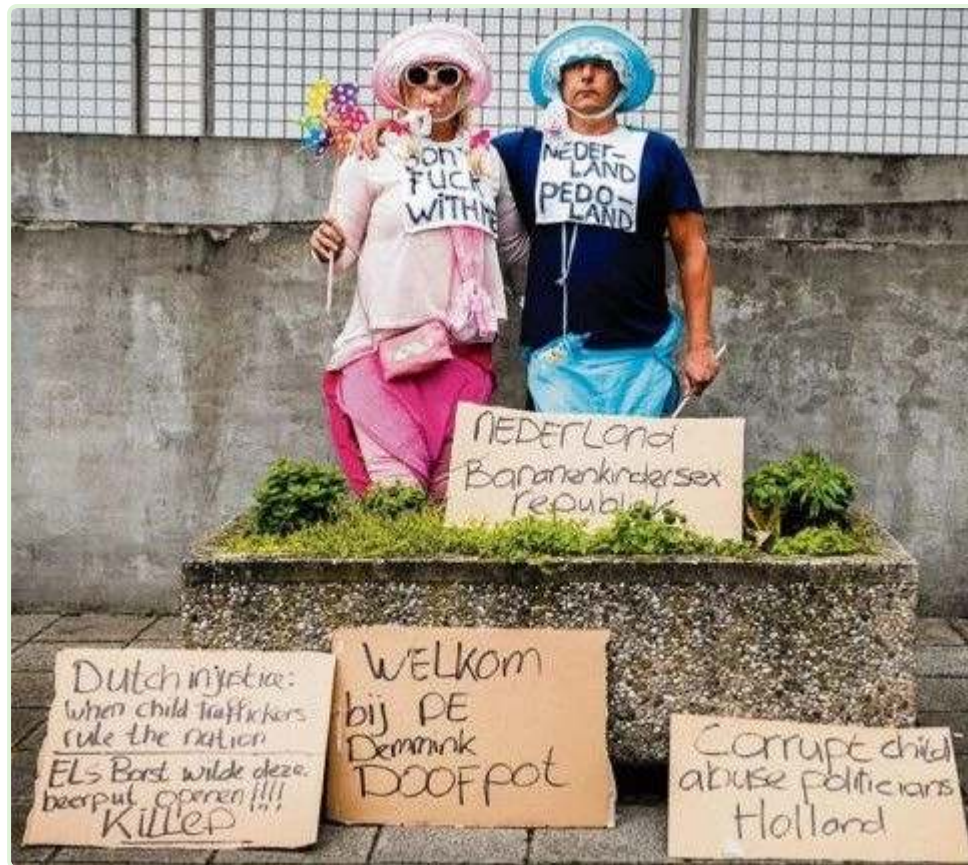 DON'T
FUCK
WITH ME
NEDER-
LAND
PEDO-
LAND
NEDERLAND
Bananenkindersex
republiek
Dutch injustice:
when child traffickers
rule the nation
Els Borst wilde deze
beerput openen!!!!
Killed
WELKOM
bij DE
Demmink
DOOFPOT
Corrupt child
abuse politicians
Holland